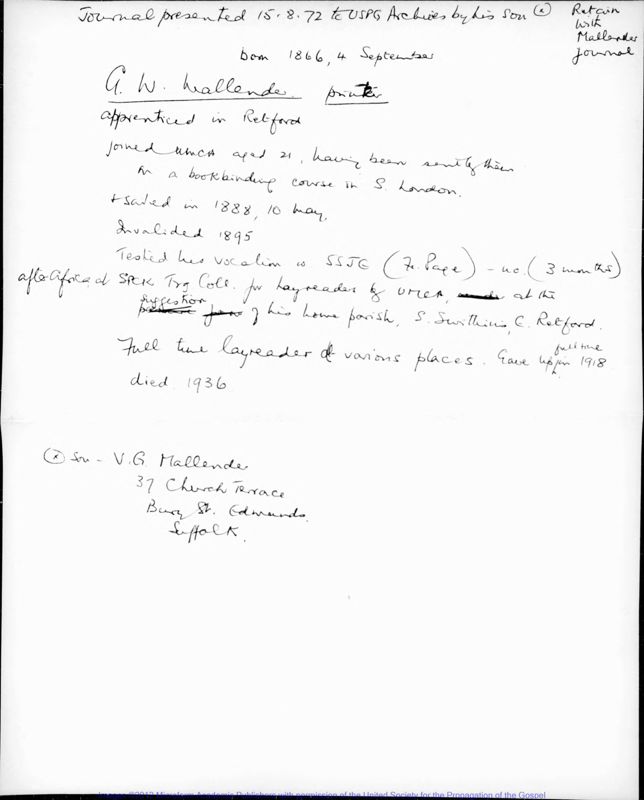 Journal presented 15.8.72 to USPG Archives by his son (x)
Retain
with
Mallender
journal
born 1866, 4 September
G. W. Mallender printer
apprenticed in Retford
joined UMCA aged 21, having been sent by them
for a bookbinding course in S. London.
& sailed in 1888, 10 May,
Invalided 1895
Tested his vocation w SSJE (Fr. Page) - no. (3 months)
after Africa, at SPCK Trg Coll. for layreaders by UMCA, at the
suggestion of his home parish, S. Swithins, E. Retford.
Full time layreader at various places. Gave up full time in 1918
died 1936
(x) Son - V.G. Mallender
37 Church Terrace
Bury St. Edmunds.
Suffolk.
Images ©2012 Microform Academic Publishers with permission of the United Society for the Propagation of the Gospel